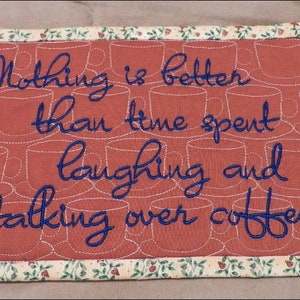 Nothing is better
than time spent
laughing and
talking over coffee